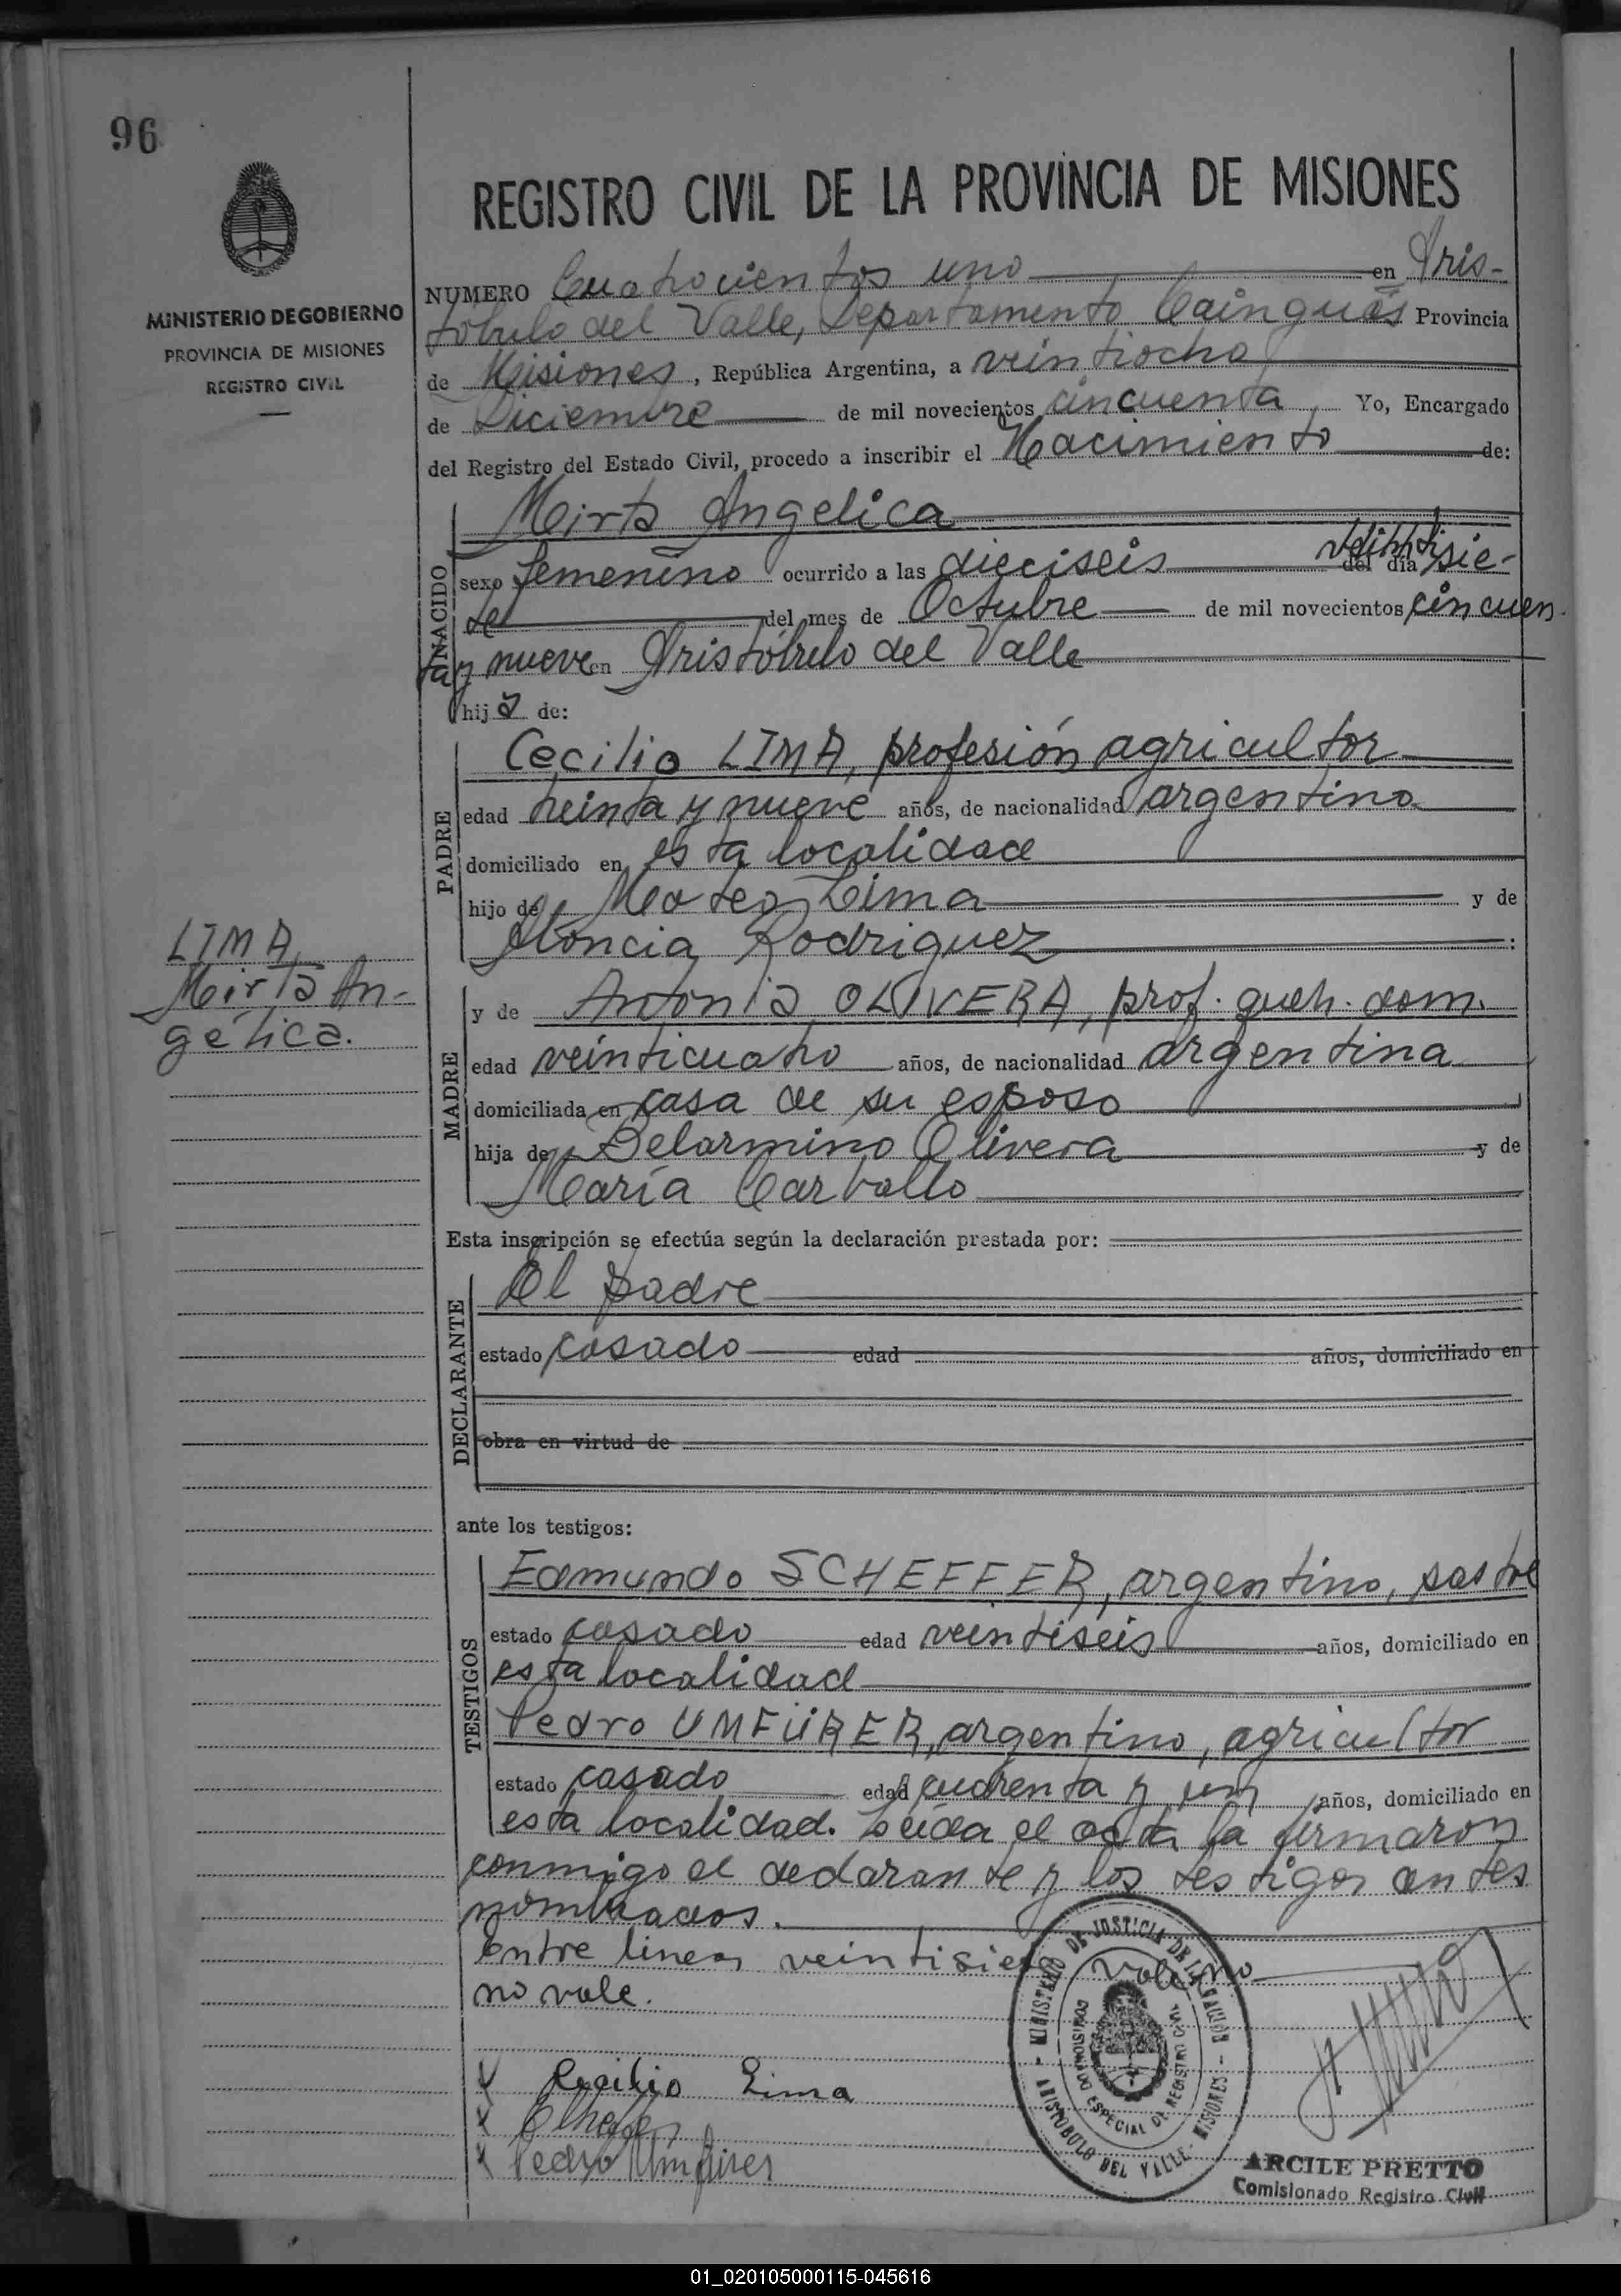 96
MINISTERIO DE GOBIERNO
PROVINCIA DE MISIONES
REGISTRO CIVIL
REGISTRO CIVIL DE LA PROVINCIA DE MISIONES
NUMERO Cuatrocientos uno en Aris-
tóbulo del Valle, Departamento Cainguás Provincia
de Misiones, República Argentina, a veintiocho
de Diciembre de mil novecientos cincuenta Yo, Encargado
del Registro del Estado Civil, procedo a inscribir el Nacimiento de:
NACIDO
Mirta Angelica
sexo femenino ocurrido a las dieciseis del día veintisie-
te del mes de Octubre de mil novecientos cincuen
ta y nueve en Aristóbulo del Valle
hija de:
PADRE
Cecilio LIMA, profesión agricultor
edad treinta y nueve años, de nacionalidad argentino
domiciliado en esta localidad
hijo de Mateo Lima y de
Rodriguez :
LIMA
Mirta An-
gélica.
MADRE
y de Antonia OLIVERA, prof. queh. dom.
edad veinticuatro años, de nacionalidad argentina
domiciliada en casa de su esposo
hija de Belarmino Olivera y de
María Carballo
Esta inscripción se efectúa según la declaración prestada por:
DECLARANTE
El padre
estado casado edad años, domiciliado en
obra en virtud de
ante los testigos:
TESTIGOS
Edmundo SCHEFFER, argentino, sastre
estado casado edad veintiseis años, domiciliado en
esta localidad
Pedro UMFÜRER, argentino, agricultor
estado casado edad cuarenta y un años, domiciliado en
esta localidad. Leída el acta la firmaron
conmigo el declarante y los testigos antes
nombrados.
Entre lineas veintisiete vale no
no vale.
MINISTERIO DE JUSTICIA DE LA NACION
COMISIONADO ESPECIAL DE REGISTRO CIVIL
ARISTOBULO DEL VALLE - MISIONES -
Cecilio Lima
Pedro Umfürer
ARCILE PRETTO
Comisionado Registro Civil
01_020105000115-045616